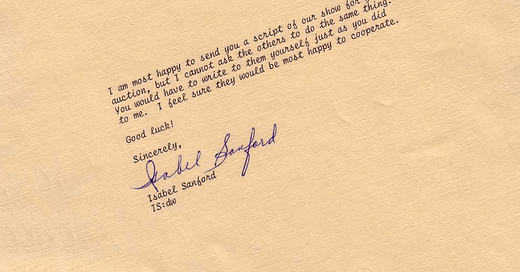 I am most happy to send you a script of our show for
auction, but I cannot ask the others to do the same thing.
You would have to write to them yourself just as you did
to me. I feel sure they would be most happy to cooperate.
Good luck!
Sincerely,
Isabel Sanford
Isabel Sanford
IS:dw